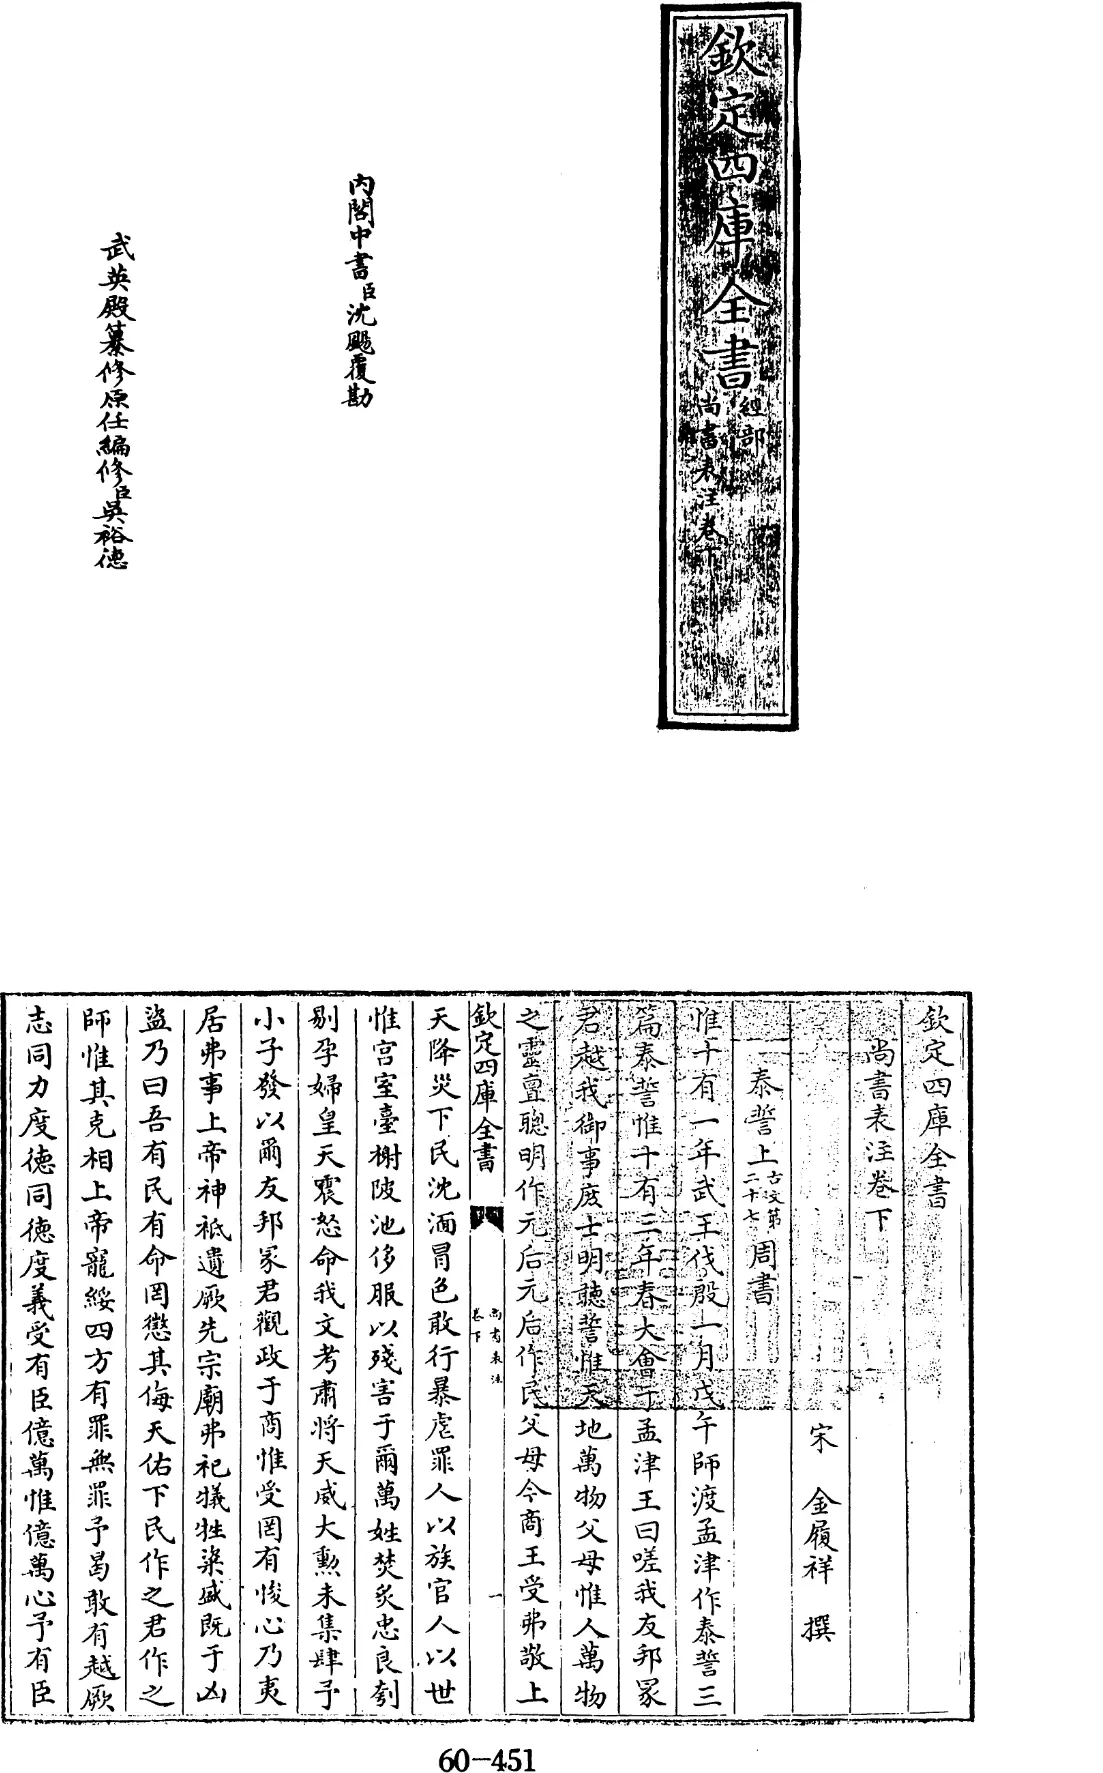 欽定四庫全書
經部
尚書表注卷下
內閣中書臣沈颺覆勘
武英殿纂修原任編修臣吳裕德
欽定四庫全書
尚書表注卷下
宋 金履祥 撰
泰誓上古文第二十七周書
惟十有一年武王伐殷一月戊午師渡孟津作泰誓三
篇泰誓惟十有三年春大會于孟津王曰嗟我友邦冢
君越我御事庶士明聽誓惟天地萬物父母惟人萬物
之靈亶聰明作元后元后作民父母今商王受弗敬上
欽定四庫全書 尚書表注卷下 一
天降災下民沈湎冒色敢行暴虐罪人以族官人以世
惟宫室臺榭陂池侈服以殘害于爾萬姓焚炙忠良刳
剔孕婦皇天震怒命我文考肅將天威大勲未集肆予
小子發以爾友邦冢君觀政于商惟受罔有悛心乃夷
居弗事上帝神祗遺厥先宗廟弗祀犧牲粢盛既于凶
盜乃曰吾有民有命罔懲其侮天佑下民作之君作之
師惟其克相上帝寵綏四方有罪無罪予曷敢有越厥
志同力度德同德度義受有臣億萬惟億萬心予有臣
60-451